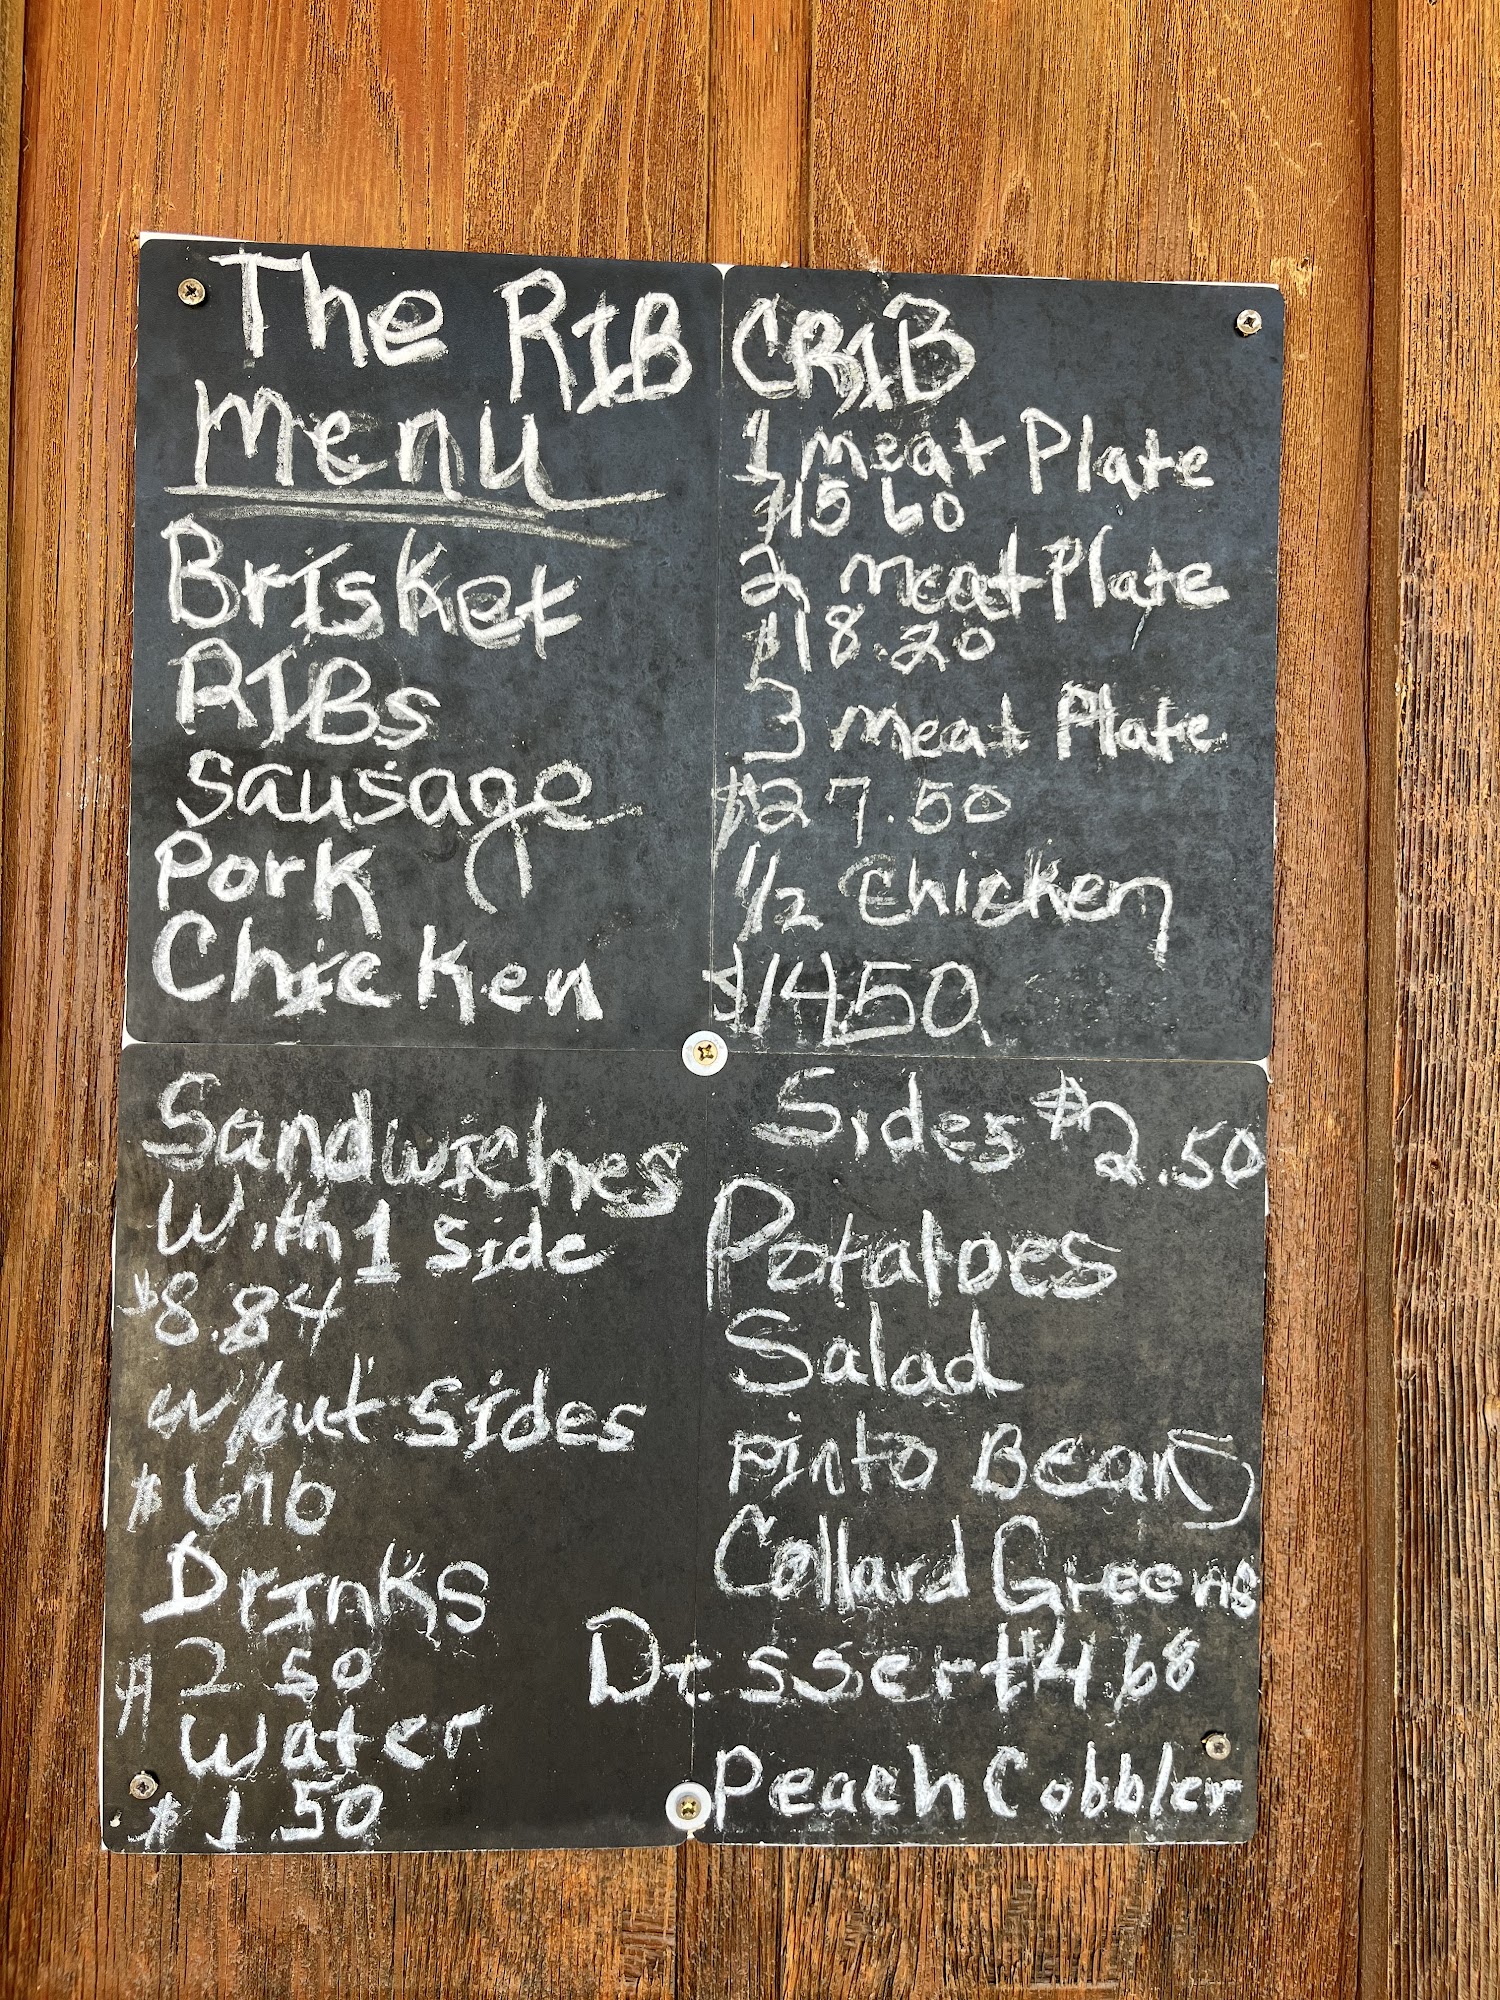 The RIB CRIB
Menu
Brisket
RIBs
Sausage
Pork
Chicken
1 meat Plate
$15 60
2 meat Plate
$18.20
3 meat Plate
$27.50
1/2 Chicken
$14.50
Sandwiches
With 1 Side
$8.84
w/out Sides
$6.76
Drinks
$2 50
Water
$1.50
Sides $2.50
Potatoes
Salad
pinto Beans
Collard Greens
Dessert $4 68
Peach Cobbler